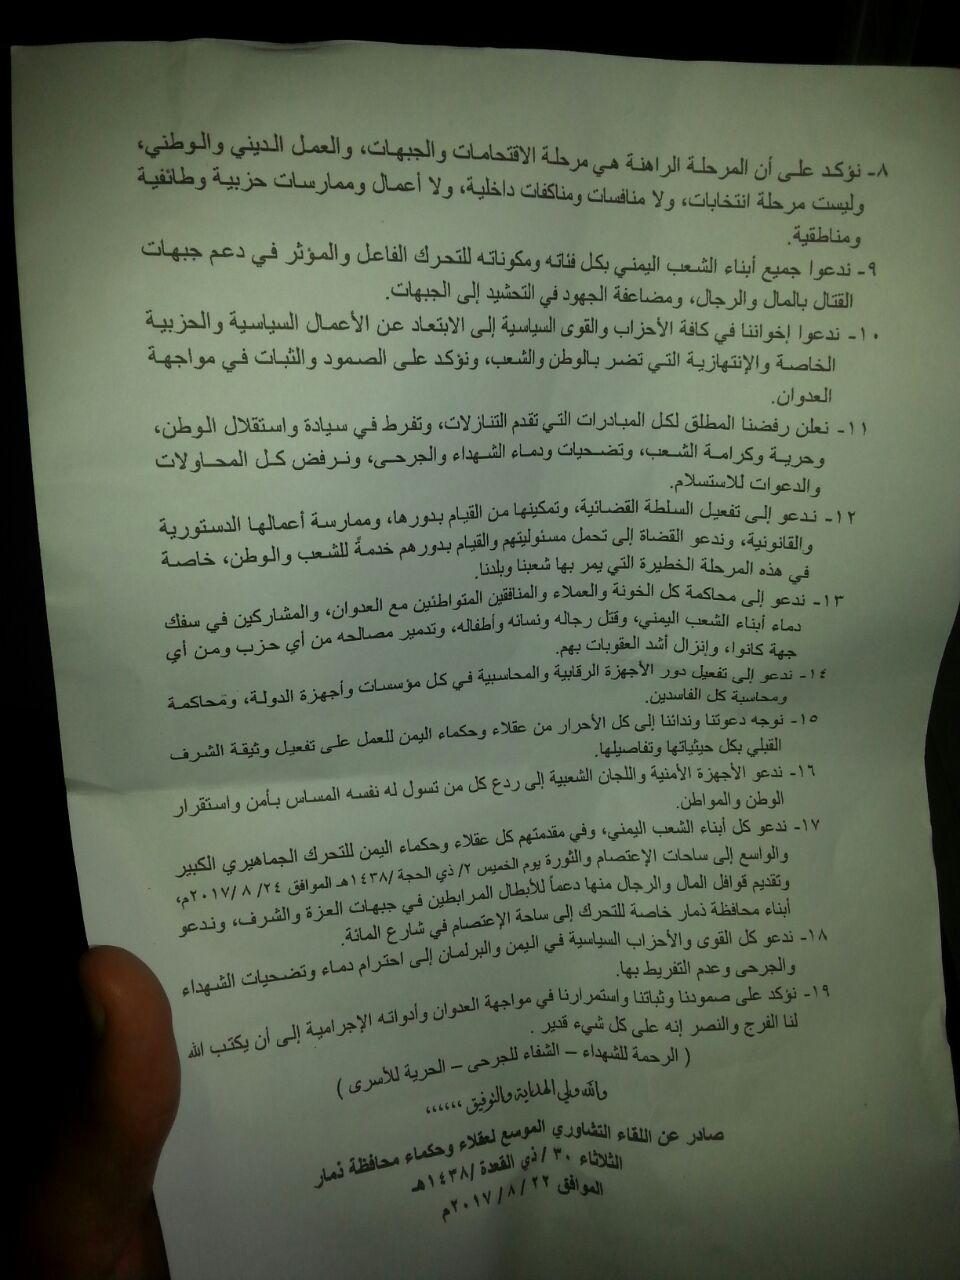 ٨- نؤكد على أن المرحلة الراهنة هي مرحلة الاقتحامات والجبهات، والعمل الديني والوطني،
وليست مرحلة انتخابات، ولا منافسات ومناكفات داخلية، ولا أعمال وممارسات حزبية وطائفية
ومناطقية.
٩- ندعوا جميع أبناء الشعب اليمني بكل فئاته ومكوناته للتحرك الفاعل والمؤثر في دعم جبهات
القتال بالمال والرجال، ومضاعفة الجهود في التحشيد إلى الجبهات.
١٠- ندعوا إخواننا في كافة الأحزاب والقوى السياسية إلى الابتعاد عن الأعمال السياسية والحزبية
الخاصة والإنتهازية التي تضر بالوطن والشعب، ونؤكد على الصمود والثبات في مواجهة
العدوان.
١١- نعلن رفضنا المطلق لكل المبادرات التي تقدم التنازلات، وتفرط في سيادة واستقلال الوطن،
وحرية وكرامة الشعب، وتضحيات ودماء الشهداء والجرحى، ونرفض كل المحاولات
والدعوات للاستسلام.
١٢- ندعو إلى تفعيل السلطة القضائية، وتمكينها من القيام بدورها، وممارسة أعمالها الدستورية
والقانونية، وندعو القضاة إلى تحمل مسئوليتهم والقيام بدورهم خدمةً للشعب والوطن، خاصة
في هذه المرحلة الخطيرة التي يمر بها شعبنا وبلدنا.
١٣- ندعو إلى محاكمة كل الخونة والعملاء والمنافقين المتواطئين مع العدوان، والمشاركين في سفك
دماء أبناء الشعب اليمني، وقتل رجاله ونسائه وأطفاله، وتدمير مصالحه من أي حزب ومن أي
جهة كانوا، وإنزال أشد العقوبات بهم.
١٤- ندعو إلى تفعيل دور الأجهزة الرقابية والمحاسبية في كل مؤسسات وأجهزة الدولة، ومحاكمة
ومحاسبة كل الفاسدين.
١٥- نوجه دعوتنا وندائنا إلى كل الأحرار من عقلاء وحكماء اليمن للعمل على تفعيل وثيقة الشرف
القبلي بكل حيثياتها وتفاصيلها.
١٦- ندعو الأجهزة الأمنية واللجان الشعبية إلى ردع كل من تسول له نفسه المساس بأمن واستقرار
الوطن والمواطن.
١٧- ندعو كل أبناء الشعب اليمني، وفي مقدمتهم كل عقلاء وحكماء اليمن للتحرك الجماهيري الكبير
والواسع إلى ساحات الإعتصام والثورة يوم الخميس ٢/ ذي الحجة /١٤٣٨هـ الموافق ٢٤/ ٨ /٢٠١٧م،
وتقديم قوافل المال والرجال منها دعماً للأبطال المرابطين في جبهات العزة والشرف، وندعو
أبناء محافظة ذمار خاصة للتحرك إلى ساحة الإعتصام في شارع المائة.
١٨- ندعو كل القوى والأحزاب السياسية في اليمن والبرلمان إلى احترام دماء وتضحيات الشهداء
والجرحى وعدم التفريط بها.
١٩- نؤكد على صمودنا وثباتنا واستمرارنا في مواجهة العدوان وأدواته الإجرامية إلى أن يكتب الله
لنا الفرج والنصر إنه على كل شيء قدير .
( الرحمة للشهداء – الشفاء للجرحى – الحرية للأسرى )
والله ولي الهداية والتوفيق ،،،،،،
صادر عن اللقاء التشاوري الموسع لعقلاء وحكماء محافظة ذمار
الثلاثاء ٣٠ /ذي القعدة /١٤٣٨هـ
الموافق ٢٢ /٨ /٢٠١٧م